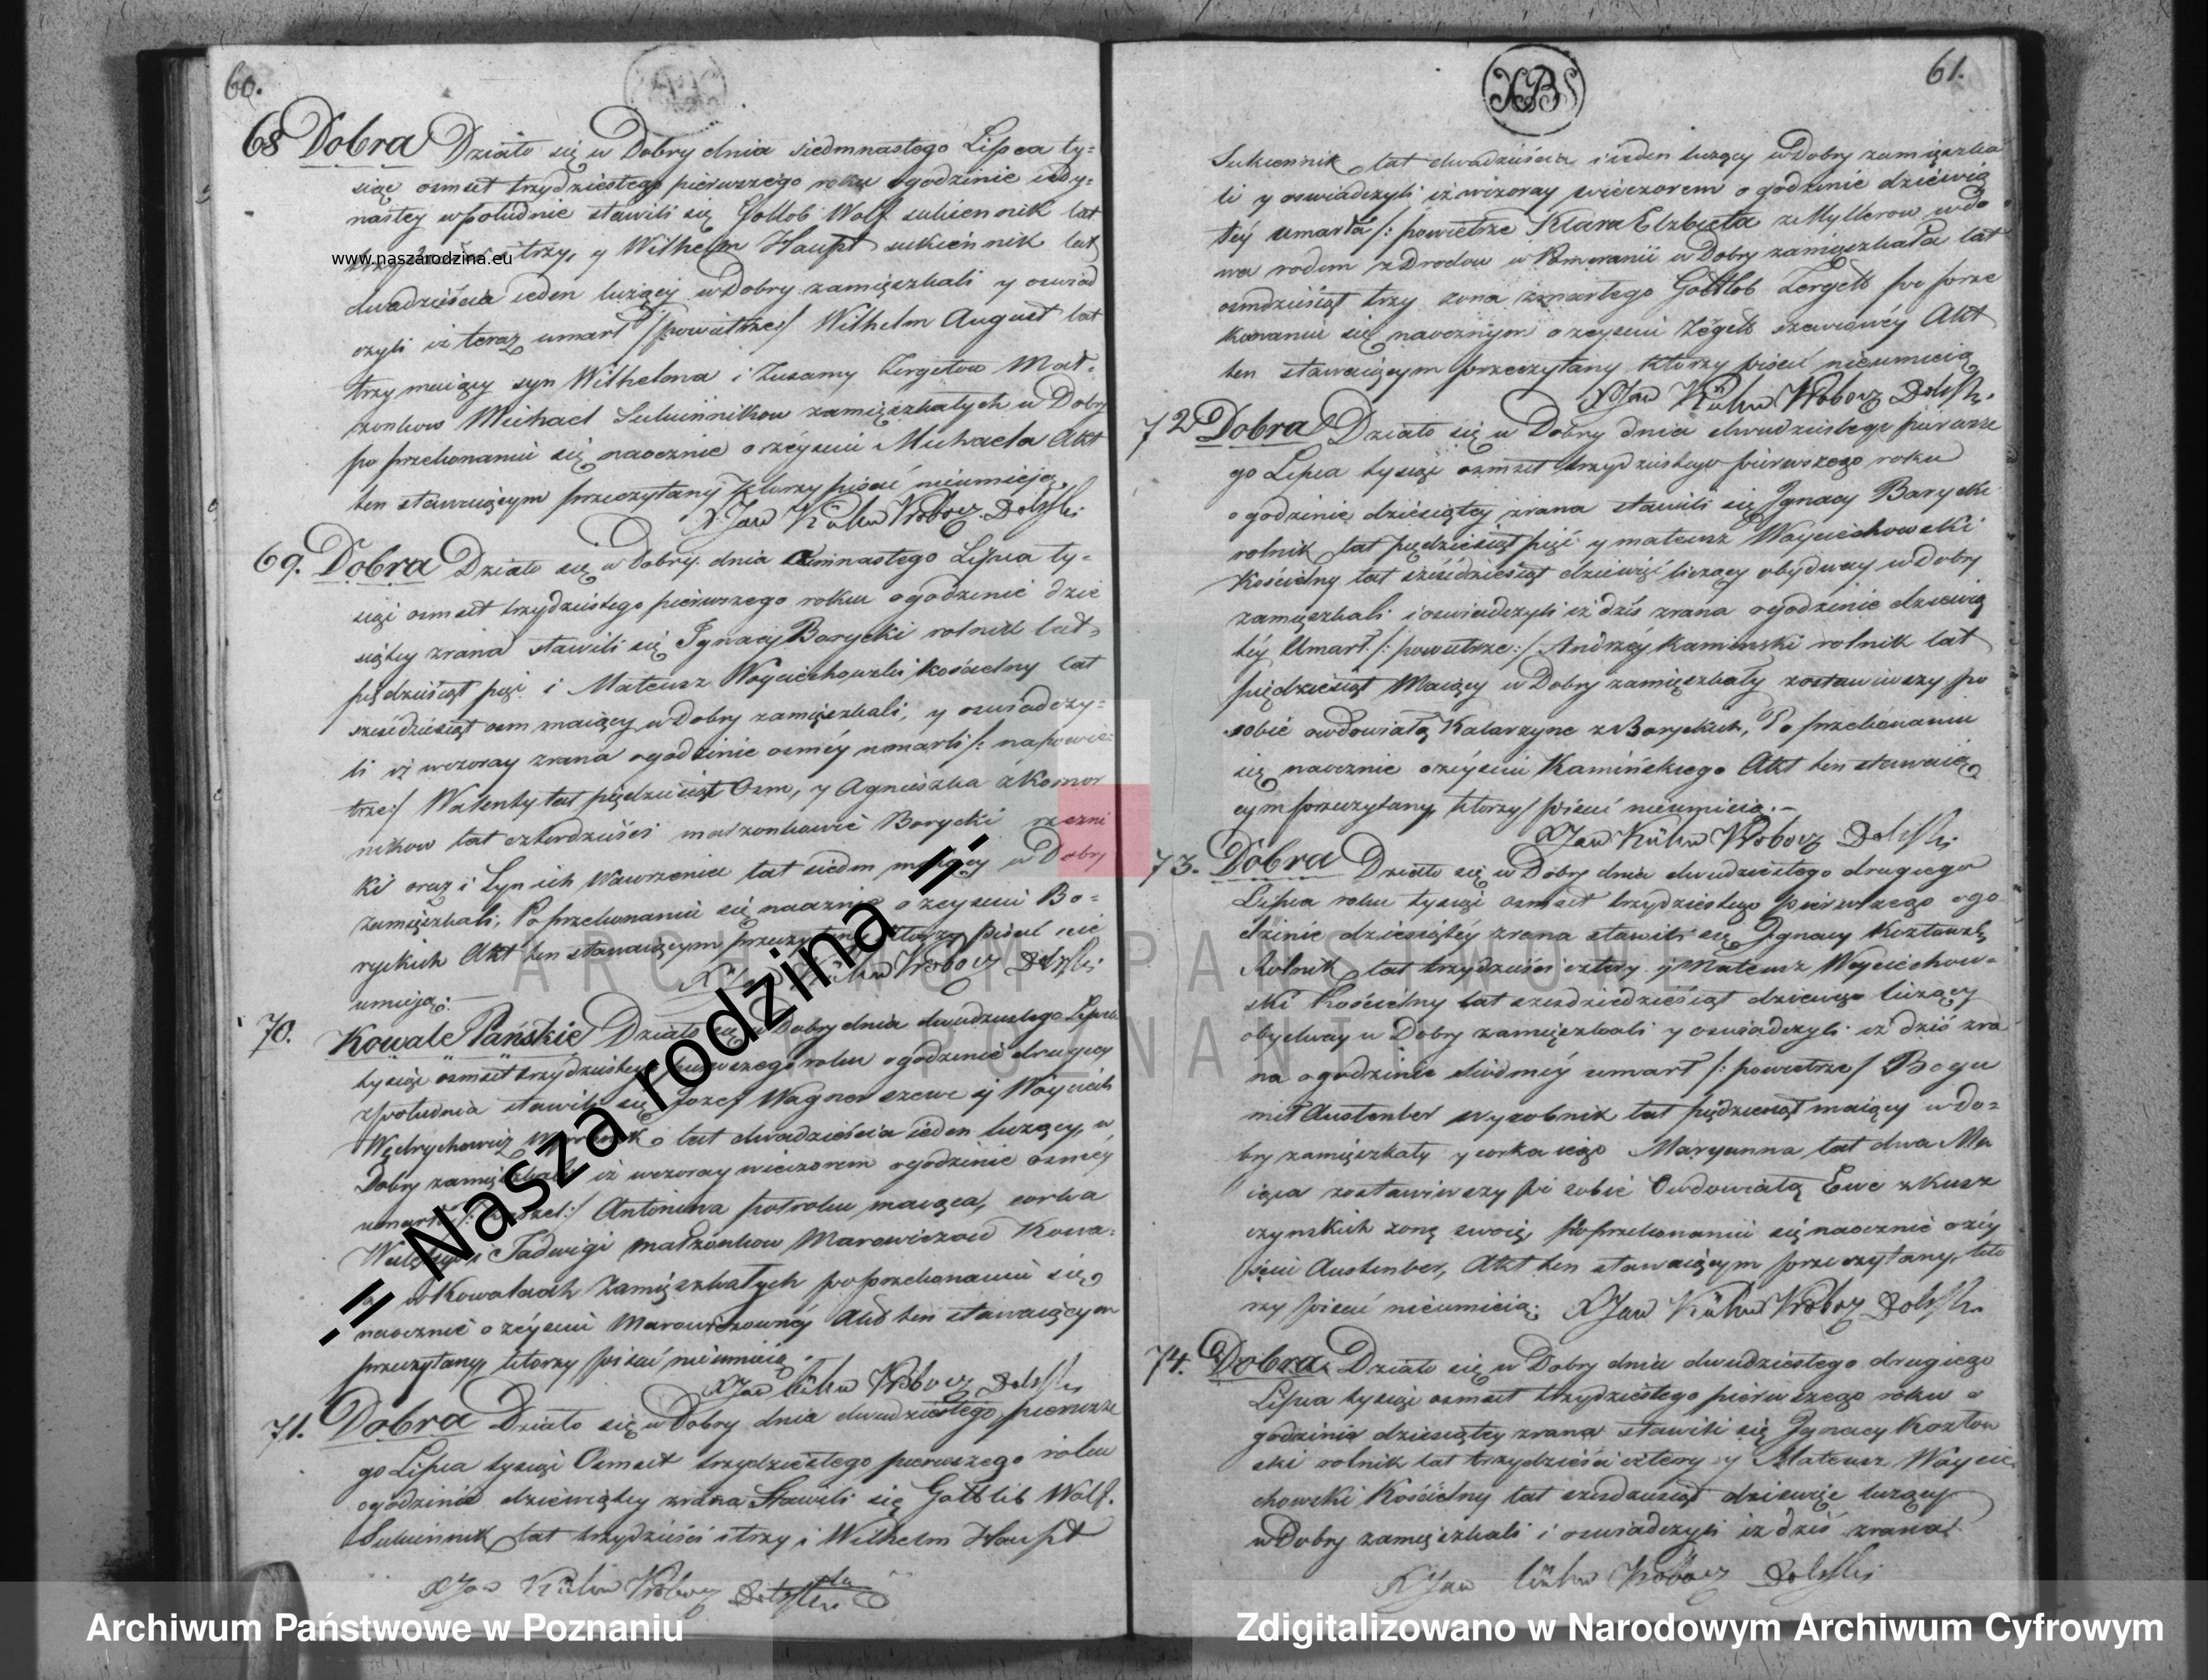 60.
68 Dobra Działo się w Dobry dnia siedmnastego Lipca ty=
siąc osmset trzydziestego pierwszego roku o godzinie iedy=
nastey w południe stawili się Gottlob Wolf sukiennik lat
www.naszarodzina.eu
trzy, y Wilhelm Haupt sukiennik lat
dwadzieścia ieden liczący w Dobry zamięszkali y oswiad
czyli iż teraz umarł /:powietrze:/ Wilhelm August lat
trzy maiący syn Wilhelma i Zusanny Mał=
żonkow Michael Sukiennikow zamięszkałych w Dobry
po przekonaniu się naocznie o zéysciu Michaela Akt
ten stawaiącym przeczytany ktorzy pisać nieumieją
X Jan Kühn Proboscz Dobrski
69. Dobra Działo się w Dobry dnia osimnastego Lipca ty=
siąc osmset trzydziestego pierwszego roku o godzinie dzie
siątey zrana stawili się Ignacy Barycki rolnik lat
piędziesiąt pięć i Mateusz Woyciechowski kościelny lat
sześćdziesiąt osm maiący w Dobry zamięszkali, y oswiadczy=
li iż wczoray zrana o godzinie osméy umarli /: na powie=
trze:/ Walenty lat pięćdziesiąt Osm, y Agnieszka z Komor
nikow lat czterdzieści małżonkowie Barycki rzezni
ki oraz i Syn ich Wawrzeniec lat siedm maiący w Dobry
zamięszkali, Po przekonaniu się naocznie o zeysciu Ba=
ryckich Akt ten stawaiącym przeczytany ktorzy pisać nie
umieją:
X Jan Kühn Proboscz Dobrski
70. Kowale Pańskie Działo się w Dobry dnia dwudziestego Lipca
tysiąc osmset trzydziestego pierwszego roku o godzinie drugiey
z południa stawili się Jozef Wagner szewc y Woyciech
lat dwadzieścia ieden liczący, w
Dobry zamięszkali iż wczoray wieczorem o godzinie osméy
umarła Antonina pół roku maiąca, corka
i Jadwigi małżonkow Marowiczow Kowa=
w Kowalach zamięszkałych po przekonaniu się
naocznie o zéysciu Marowiczowney Akt ten stawaiącym
przeczytany, ktorzy pisać nieumieią.
X Jan Kühn Proboscz Dobrski
71. Dobra Działo się w Dobry dnia dwudziestego pierwsze
go Lipca tysiąc Osmset trzydziestego pierwszego roku
o godzinie dziewiątey zrana Stawili się Gottlib Wolf.
Sukiennik lat trzydzieści i trzy i Wilhelm Haupt
X Jan Kühn Proboscz Dobrski
61.
XBS
Sukiennik lat dwadzieścia i ieden liczący w Dobry zamięszka
li y oswiadczyli iż wczoray wieczorem o godzinie dziewią
téy umarła /: powietrze Klara Elzbieta z Myllerow wdo
wa rodem z w Pomeranii w Dobry zamięszkała lat
osmdziesiąt trzy zona zmarłego Gottlob Zergett po prze
konaniu się naocznym o zeysciu szewcowéy Akt
ten stawaiącym przeczytany ktorzy pisać nieumieią
X Jan Kühn Proboscz Dobrski
72 Dobra Działo się w Dobry dnia dwudziestego pierwsze
go Lipca tysiąc osmset trzydziestego pierwszego roku
o godzinie dziesiątey zrana stawili się Ignacy Barycki
rolnik lat pięćdziesiąt pięć y mateusz Woyciechowski
Kościelny lat sześćdziesiąt dziewięć liczący obydway w Dobry
zamięszkali i oswiadczyli iż dziś zrana o godzinie dziewią
téy Umarł /: powietrze:/ Andrzéy Kaminski rolnik lat
pięćdziesiąt Maiący w Dobry zamięszkały zostawiwszy po
sobie owdowiałą Katarzyne z Baryckich, Po przekonaniu
się naocznie o zéysciu Kamińskiego Akt ten stawaią
cym przeczytany, ktorzy pisać nieumieią.—
X Jan Kühn Proboscz Dobrski
73. Dobra Działo się w Dobry dnia dwudziestego drugiego
Lipca roku tysiąc osmset trzydziestego pierwszego o go
dzinie dziesiątéy zrana stawili się Ignacy Kozłowski
Rolnik lat trzydzieści cztery y Mateusz Woyciechow=
ski Kościelny lat dziewięć liczący
obydway w Dobry zamięszkali y oswiadczyli iż dziś zra
na o godzinie siódméy umarł /: powietrze/ Bogu
mił Austenber wyrobnik lat pięćdziesiąt maiący w Do=
bry zamięszkały y corka iego Maryanna lat dwa Ma
iąca zostawiwszy po sobie Owdowiałą Ewe z Kusz
czynskich zonę swoię, Po przekonaniu się naocznie o zéy
sciu Austenber, Akt ten stawaiącym przeczytany, kto
rzy pisać nieumieią: X Jan Kühn Proboscz Dobrski
74. Dobra Działo się w Dobry dnia dwudziestego drugiego
Lipca tysiąc osmset trzydziestego pierwszego roku o
godzinie dziesiątey zrana stawili się Ignacy Kozłow
ski rolnik lat trzydzieści cztery y Mateusz Woycie
chowski Kościelny lat sześdziesiąt dziewięć liczący
w Dobry zamięszkali i oswiadczyli iż dziś zrana
X Jan Kühn Proboscz Dobrski
.:= Nasza rodzina =:.
ARCHIWUM PAŃSTWOWE
W POZNANIU
Archiwum Państwowe w Poznaniu
Zdigitalizowano w Narodowym Archiwum Cyfrowym